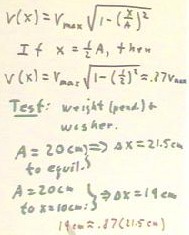 V(x) = Vmax √(1-(x/A)²)
If x = ½A, then
V(x) = Vmax √(1-(½)²) ≈ .87Vmax
Test: weight (pend.) &
washer.
A = 20cm ⇒ Δx = 21.5cm
to equil.
A = 20cm
to x = 10cm } ⇒ Δx = 19cm
19cm ≈ .87(21.5cm)